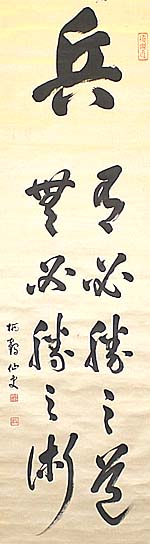 兵
有必勝之道
無必勝之術
仙史